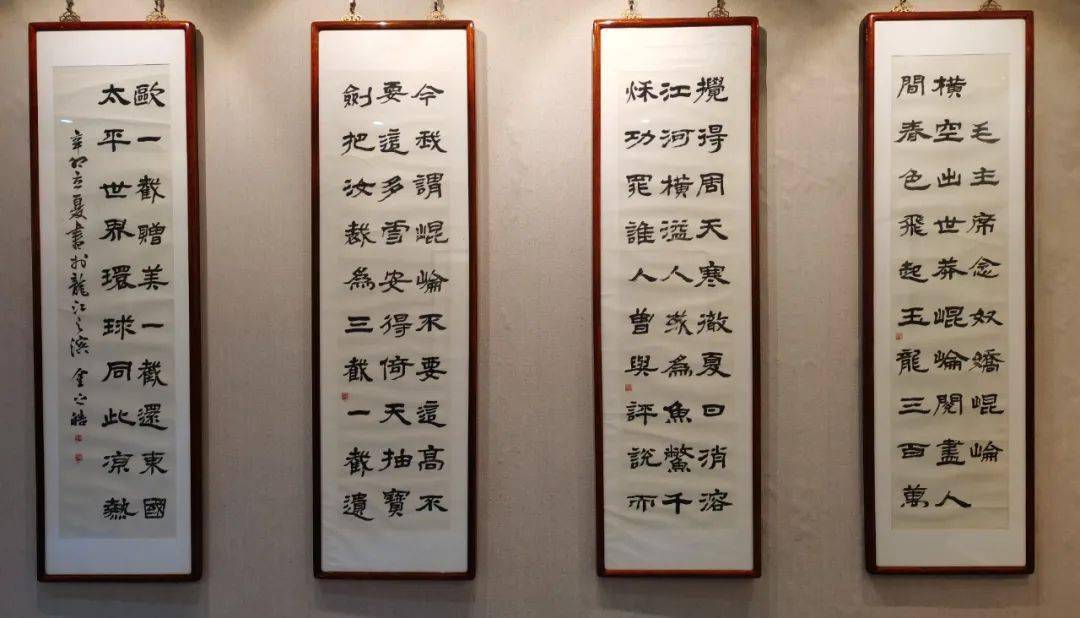 毛主席念奴嬌崐崘
橫空出世莽崐崘閱盡人
間春色飛起玉龍三百萬
攪得周天寒徹夏日消溶
江河橫溢人或為魚鱉千
秌功罪誰人曾與評說而
今我謂崐崘不要這高不
要這多雪安得倚天抽寶
劍把汝裁為三截一截遺
歐一截贈美一截還東國
太平世界環球同此涼熱
辛卯立夏書於龍江之濱